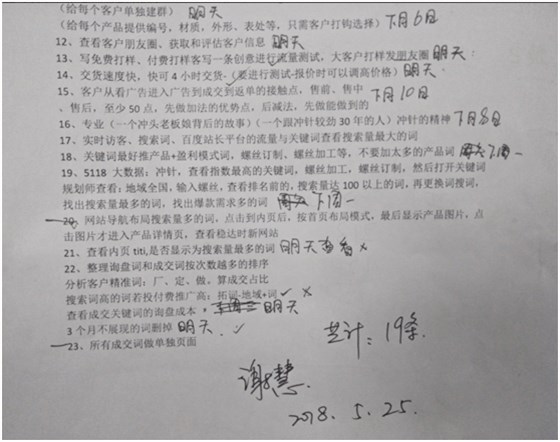 （给每个客户单独建群） 明天
（给每个产品提供编号，材质，外形、表处等，只需客户打钩选择） 下月6日
12、查看客户朋友圈、获取和评估客户信息 明天
13、写免费打样、付费打样客写一条创意进行流量测试，大客户打样发朋友圈 明天
14、交货速度快，快可4小时交货-（要进行测试-报价时可以调高价格） 明天
15、客户从看广告进入广告到成交到返单的接触点，售前、售中 下月10日
、售后，至少50点，先做加法的优势点，后减法，先做能做到的
16、专业（一个冲头老板娘背后的故事）（一个跟冲针较劲30年的人）冲针的精神 下月8日
17、实时访客、搜索词、百度站长平台的流量与关键词查看搜索量最大的词
18、关键词最好推产品+盈利模式词，螺丝订制、螺丝加工等，不要加太多的产品词 下周一
19、5118 大数据：冲针，查看指数最高的关键词，螺丝加工，螺丝订制，然后打开关键词
规划师查看：地域全国，输入螺丝，查看排名前的，搜索量达100以上的词，再更换词搜词，
找出搜索量最多的词，找出爆款需求多的词 下周一
20、网站导航布局搜索量多的词，点击到内页后，按首页布局模式，最后显示产品图片，点
击图片才进入产品详情页，查看稳达时新网站
21、查看内页 titi,是否显示为搜索量最多的词 明天查看 ×
22、整理询盘词和成交词按次数越多的排序
分析客户精准词：厂、定、做、算成交占比
搜索词高的词若投付费推广高：拓词-地域+词 ✓ ×
查看成交关键词的询盘成本， 明天
3个月不展现的词删掉 明天. ✓
23、所有成交词做单独页面
共计：19条
谢慧.
2018.5.25.